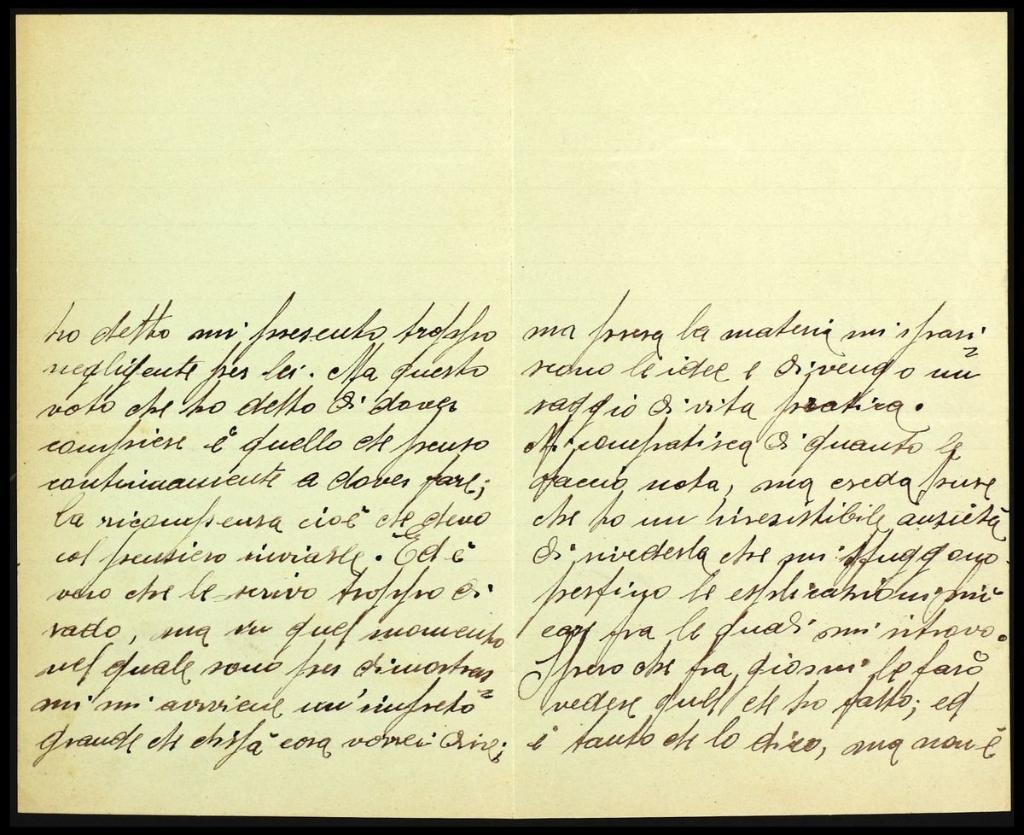 ho detto mi presento troppo
negligente per lei. Ma questo
voto che ho detto di dover
compiere è quello che penso
continuamente a dover fare;
la ricompensa cioè che devo
col pensiero inviarle. Ed è
vero che le scrivo troppo di
rado, ma in quel momento
nel quale sono per dimostrar=
mi mi avviene un'impeto
grande che chissà cosa vorrei dire;
ma presa la materia mi spari=
scono le idee e divengo un
raggio di vita pratica.
Mi compatisca di quanto le
faccio nota, ma creda pure
che ho un'irresistibile ansietà
di rivederla che mi sfuggono
perfino le esplicazioni più
care fra le quali mi ritrovo.
Spero che fra giorni le farò
vedere quel che ho fatto; ed
è tanto che lo dico, ma non è